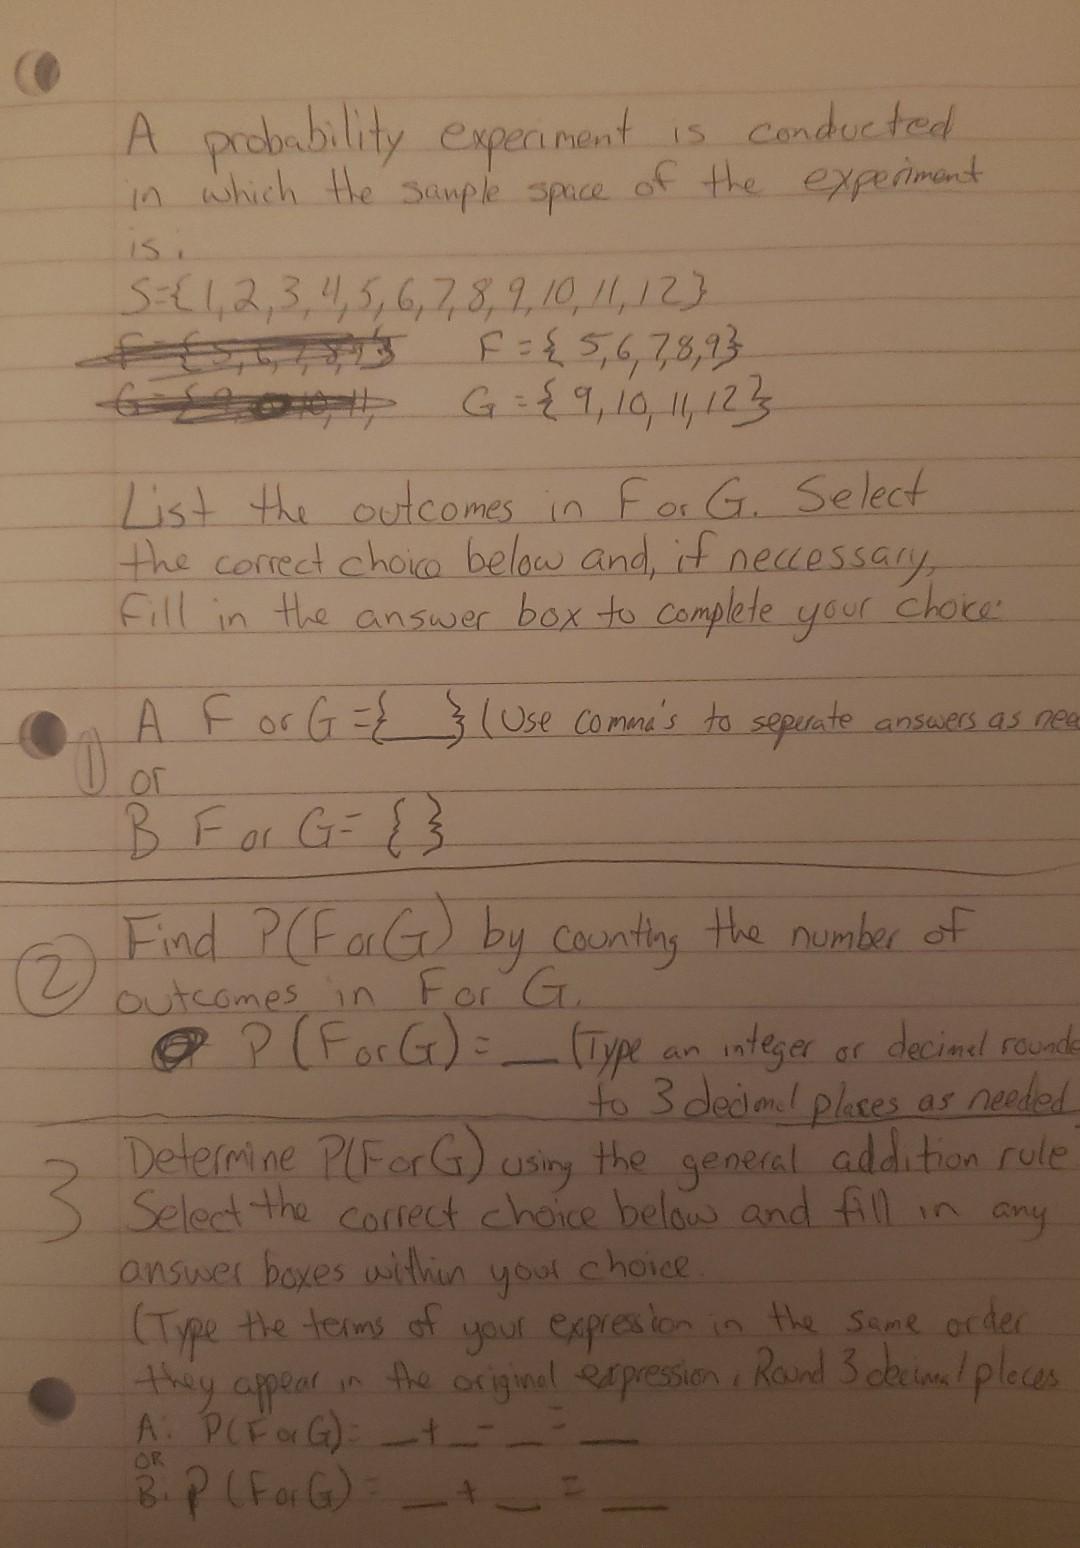 A probability experiment is conducted
in which the sample space of the experiment
is.
S={1,2,3,4,5,6,7,8,9,10,11,12}
F={5,6,7,8,9}
G={9,10,11,12}
List the outcomes in F or G. Select
the correct choice below and, if neccessary,
fill in the answer box to complete your choice.
A F or G={__} (Use comma's to seperate answers as nee
① or
B F or G= { }
② Find P(F or G) by counting the number of
outcomes in F or G.
P(F or G)= __ (Type an integer or decimal rounde
to 3 decimal places as needed
3 Determine P(F or G) using the general addition rule.
Select the correct choice below and fill in any
answer boxes within your choice.
(Type the terms of your expression in the same order
they appear in the original expression. Round 3 decimal places
A. P(F or G)= __+__-__=__
OR
B. P(F or G)= __ + __ = __